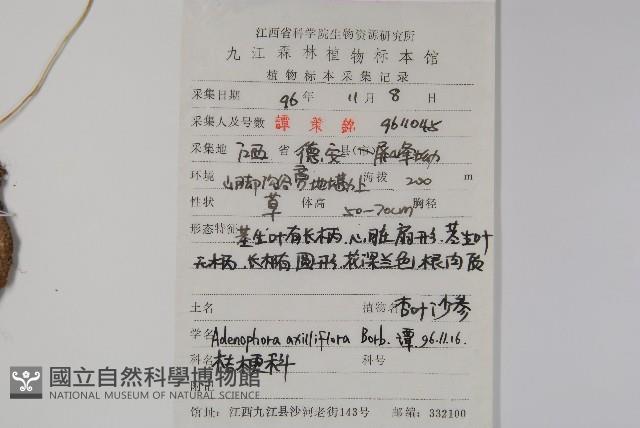 江西省科学院生物资源研究所
九江森林植物标本馆
植物标本采集记录
采集日期 96年 11月 8 日
采集人及号数 譚策銘 9611045
采集地 江西 省 德安 县(市)
环境 山脚 地 上 海拔 200 m
性状 草 体高 50-70cm 胸径
形态特征 基生叶有长柄,心脏扇形,茎生叶
无柄, 圆形,花深兰色,根肉质
土名 植物名 杏叶沙参
学名 Adenophora axilliflora Borb. 谭 96.11.16.
科名 桔梗科 科号
附记
馆址:江西九江县沙河老街143号 邮编:332100
國立自然科學博物館
NATIONAL MUSEUM OF NATURAL SCIENCE